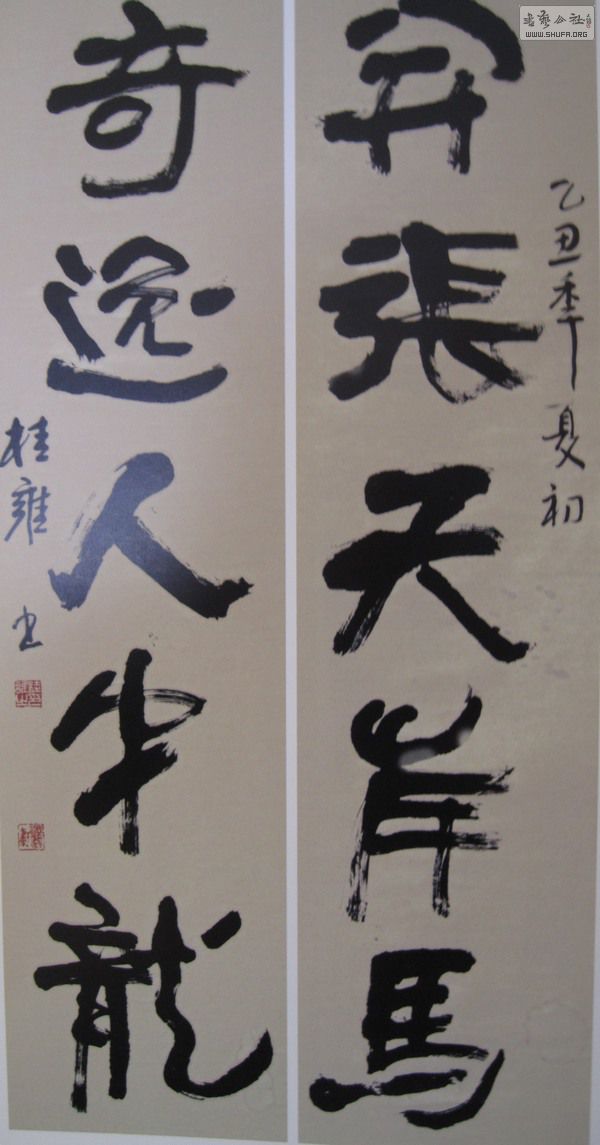 開張天岸馬
乙丑年夏初
奇逸人中龍
桂雍书
書藝公社
WWW.SHUFA.ORG